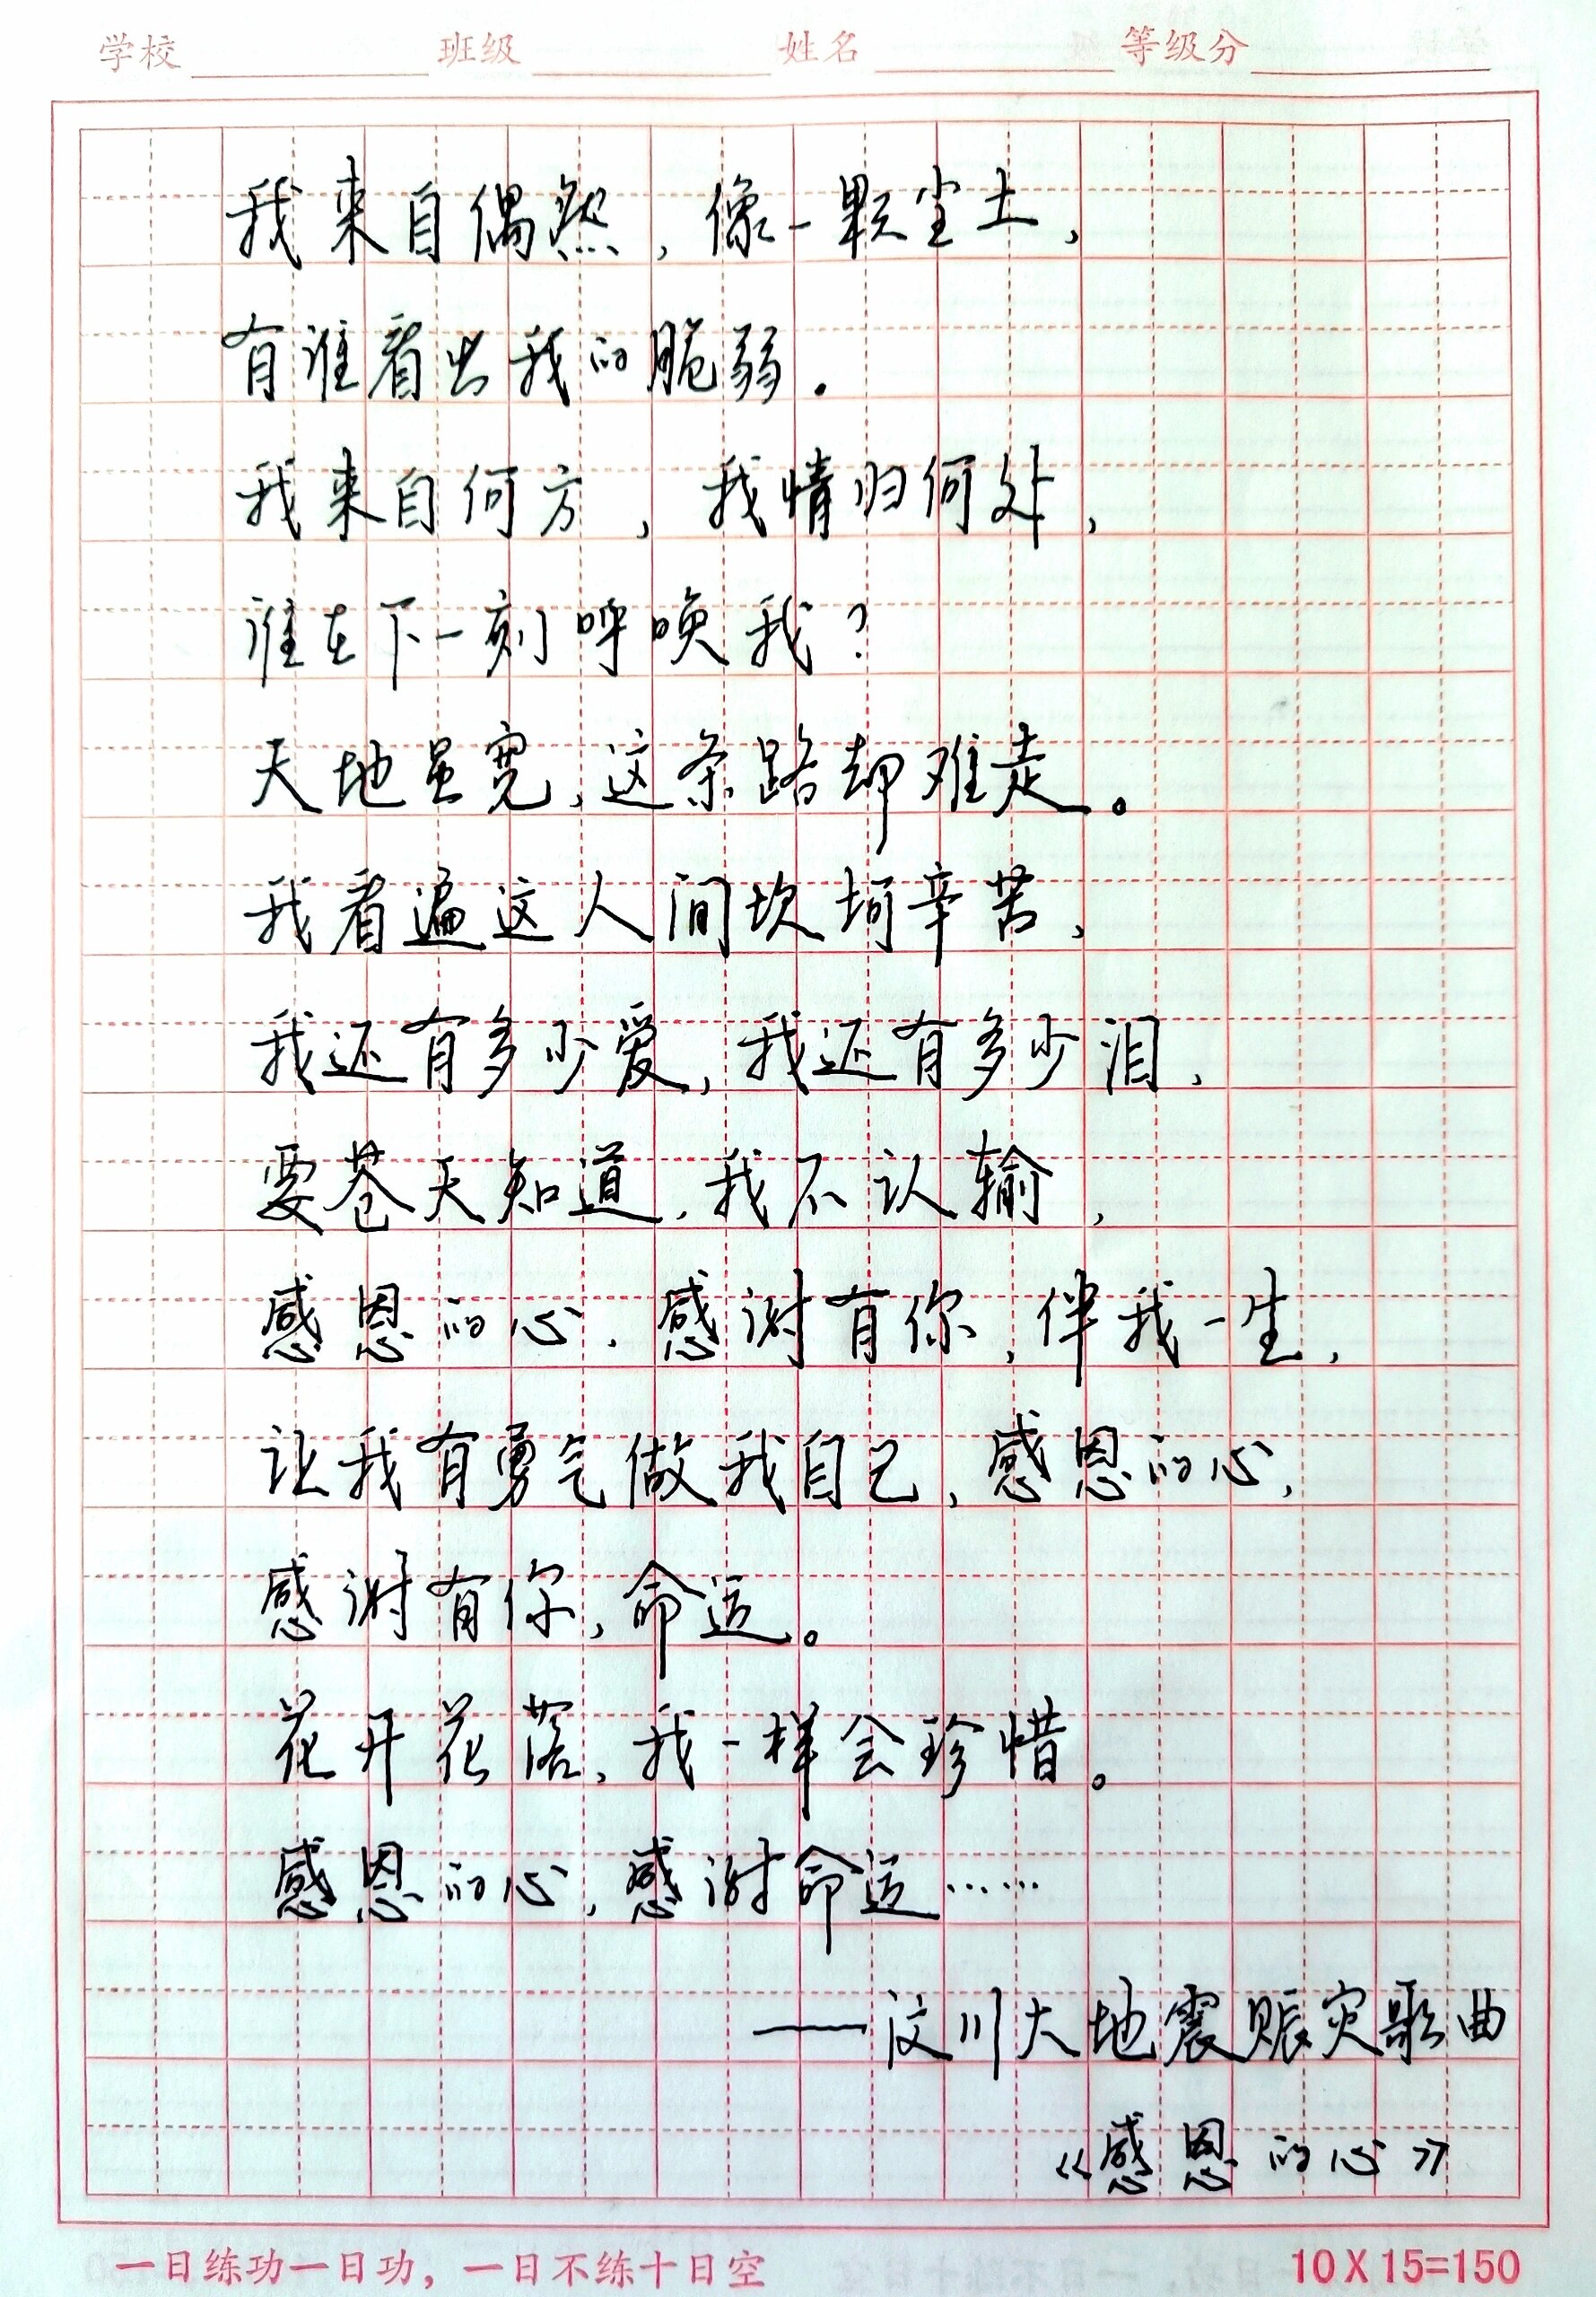 学校 班级 姓名 等级分
我来自偶然，像一颗尘土，
有谁看出我的脆弱.
我来自何方，我情归何处，
谁在下一刻呼唤我？
天地虽宽，这条路却难走。
我看遍这人间坎坷辛苦，
我还有多少爱，我还有多少泪，
要苍天知道，我不认输，
感恩的心，感谢有你，伴我一生，
让我有勇气做我自己，感恩的心，
感谢有你，命运。
花开花落，我一样会珍惜。
感恩的心，感谢命运……
——汶川大地震赈灾歌曲
《感恩的心》
一日练功一日功，一日不练十日空 10X15=150